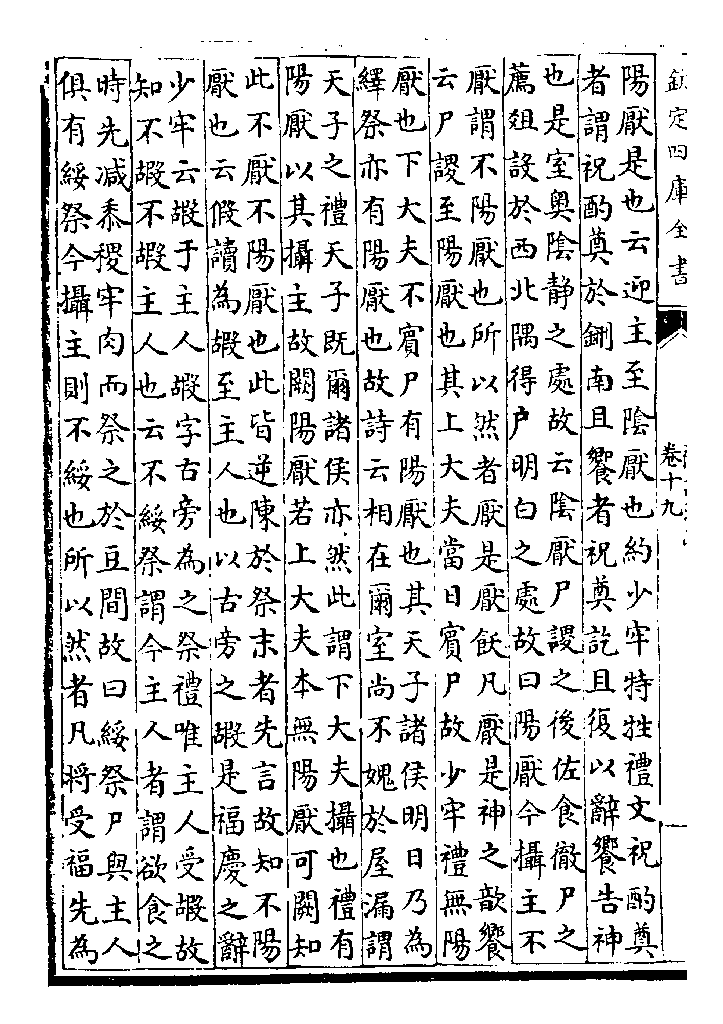 欽定四庫全書
卷十九
陽厭是也云迎主至陰厭也約少牢特牲禮文祝酌奠
者謂祝酌奠於鉶南且饗者祝奠訖且復以辭饗告神
也是室奧陰静之處故云陰厭尸謖之後佐食徹尸之
薦俎設於西北隅得户明白之處故曰陽厭今攝主不
厭謂不陽厭也所以然者厭是厭飫凡厭是神之歆饗
云尸謖至陽厭也其上大夫當日賓尸故少牢禮無陽
厭也下大夫不賓尸有陽厭也其天子諸侯明日乃為
繹祭亦有陽厭也故詩云相在爾室尚不媿於屋漏謂
天子之禮天子既爾諸侯亦然此謂下大夫攝也禮有
陽厭以其攝主故闕陽厭若上大夫本無陽厭可闕知
此不厭不陽厭也此皆逆陳於祭末者先言故知不陽
厭也云假讀為嘏至主人也以古旁之嘏是福慶之辭
少牢云嘏于主人嘏字古旁為之祭禮唯主人受嘏故
知不嘏不嘏主人也云不綏祭謂今主人者謂欲食之
時先減黍稷牢肉而祭之於豆間故曰綏祭尸與主人
俱有綏祭今攝主則不綏也所以然者凡將受福先為